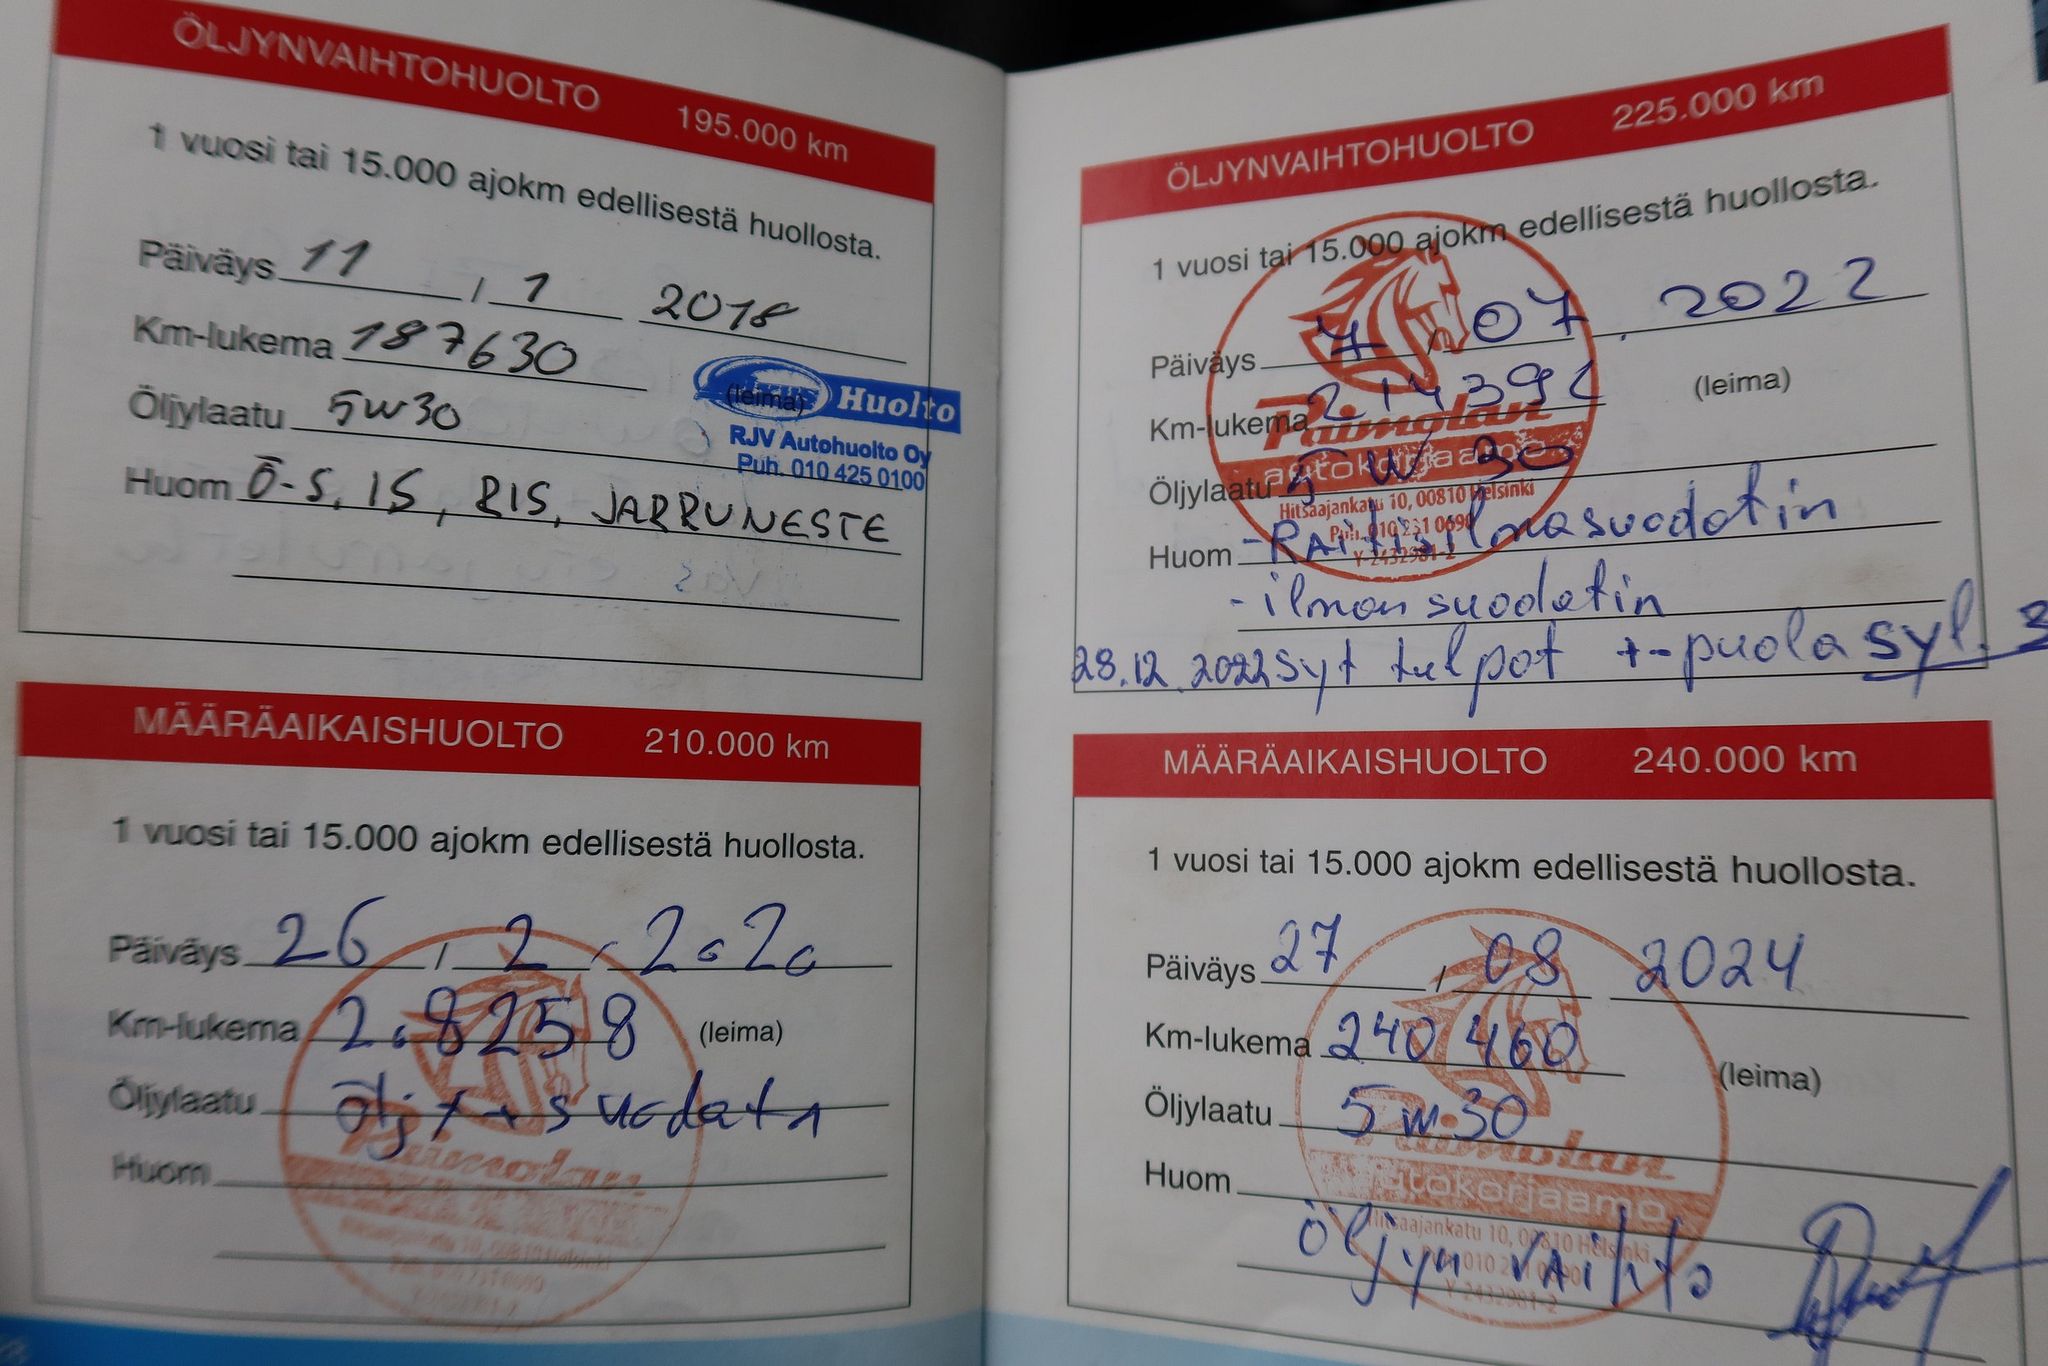 ÖLJYNVAIHTOHUOLTO 195.000 km
1 vuosi tai 15.000 ajokm edellisestä huollosta.
Päiväys 11 / 1 2018
Km-lukema 187630
(leima) Huolto
Öljylaatu 5W30
RJV Autohuolto Oy
Puh. 010 425 0100
Huom Ö-S, IS, RIS, JARRUNESTE
MÄÄRÄAIKAISHUOLTO 210.000 km
1 vuosi tai 15.000 ajokm edellisestä huollosta.
Päiväys 26 / 2 2020
Km-lukema 208258 (leima)
Öljylaatu öljy + suodata
Huom
ÖLJYNVAIHTOHUOLTO 225.000 km
1 vuosi tai 15.000 ajokm edellisestä huollosta.
Päiväys 7 / 07 . 2022
Km-lukema 214392 (leima)
Öljylaatu 5W30
autokorjaamo
Hitsaajankatu 10, 00810 Helsinki
Puh. 010 231 0690
Y-2432981-2
Huom - RAitisilmasuodatin
- ilman suodatin
28.12.2022 Syt tulpot +-puola syl. 3
MÄÄRÄAIKAISHUOLTO 240.000 km
1 vuosi tai 15.000 ajokm edellisestä huollosta.
Päiväys 27 / 08 2024
Km-lukema 240 460
(leima)
Öljylaatu 5w30
Huom
autokorjaamo
Hitsaajankatu 10, 00810 Helsinki
Y-2432981-2
öljyn vAihto